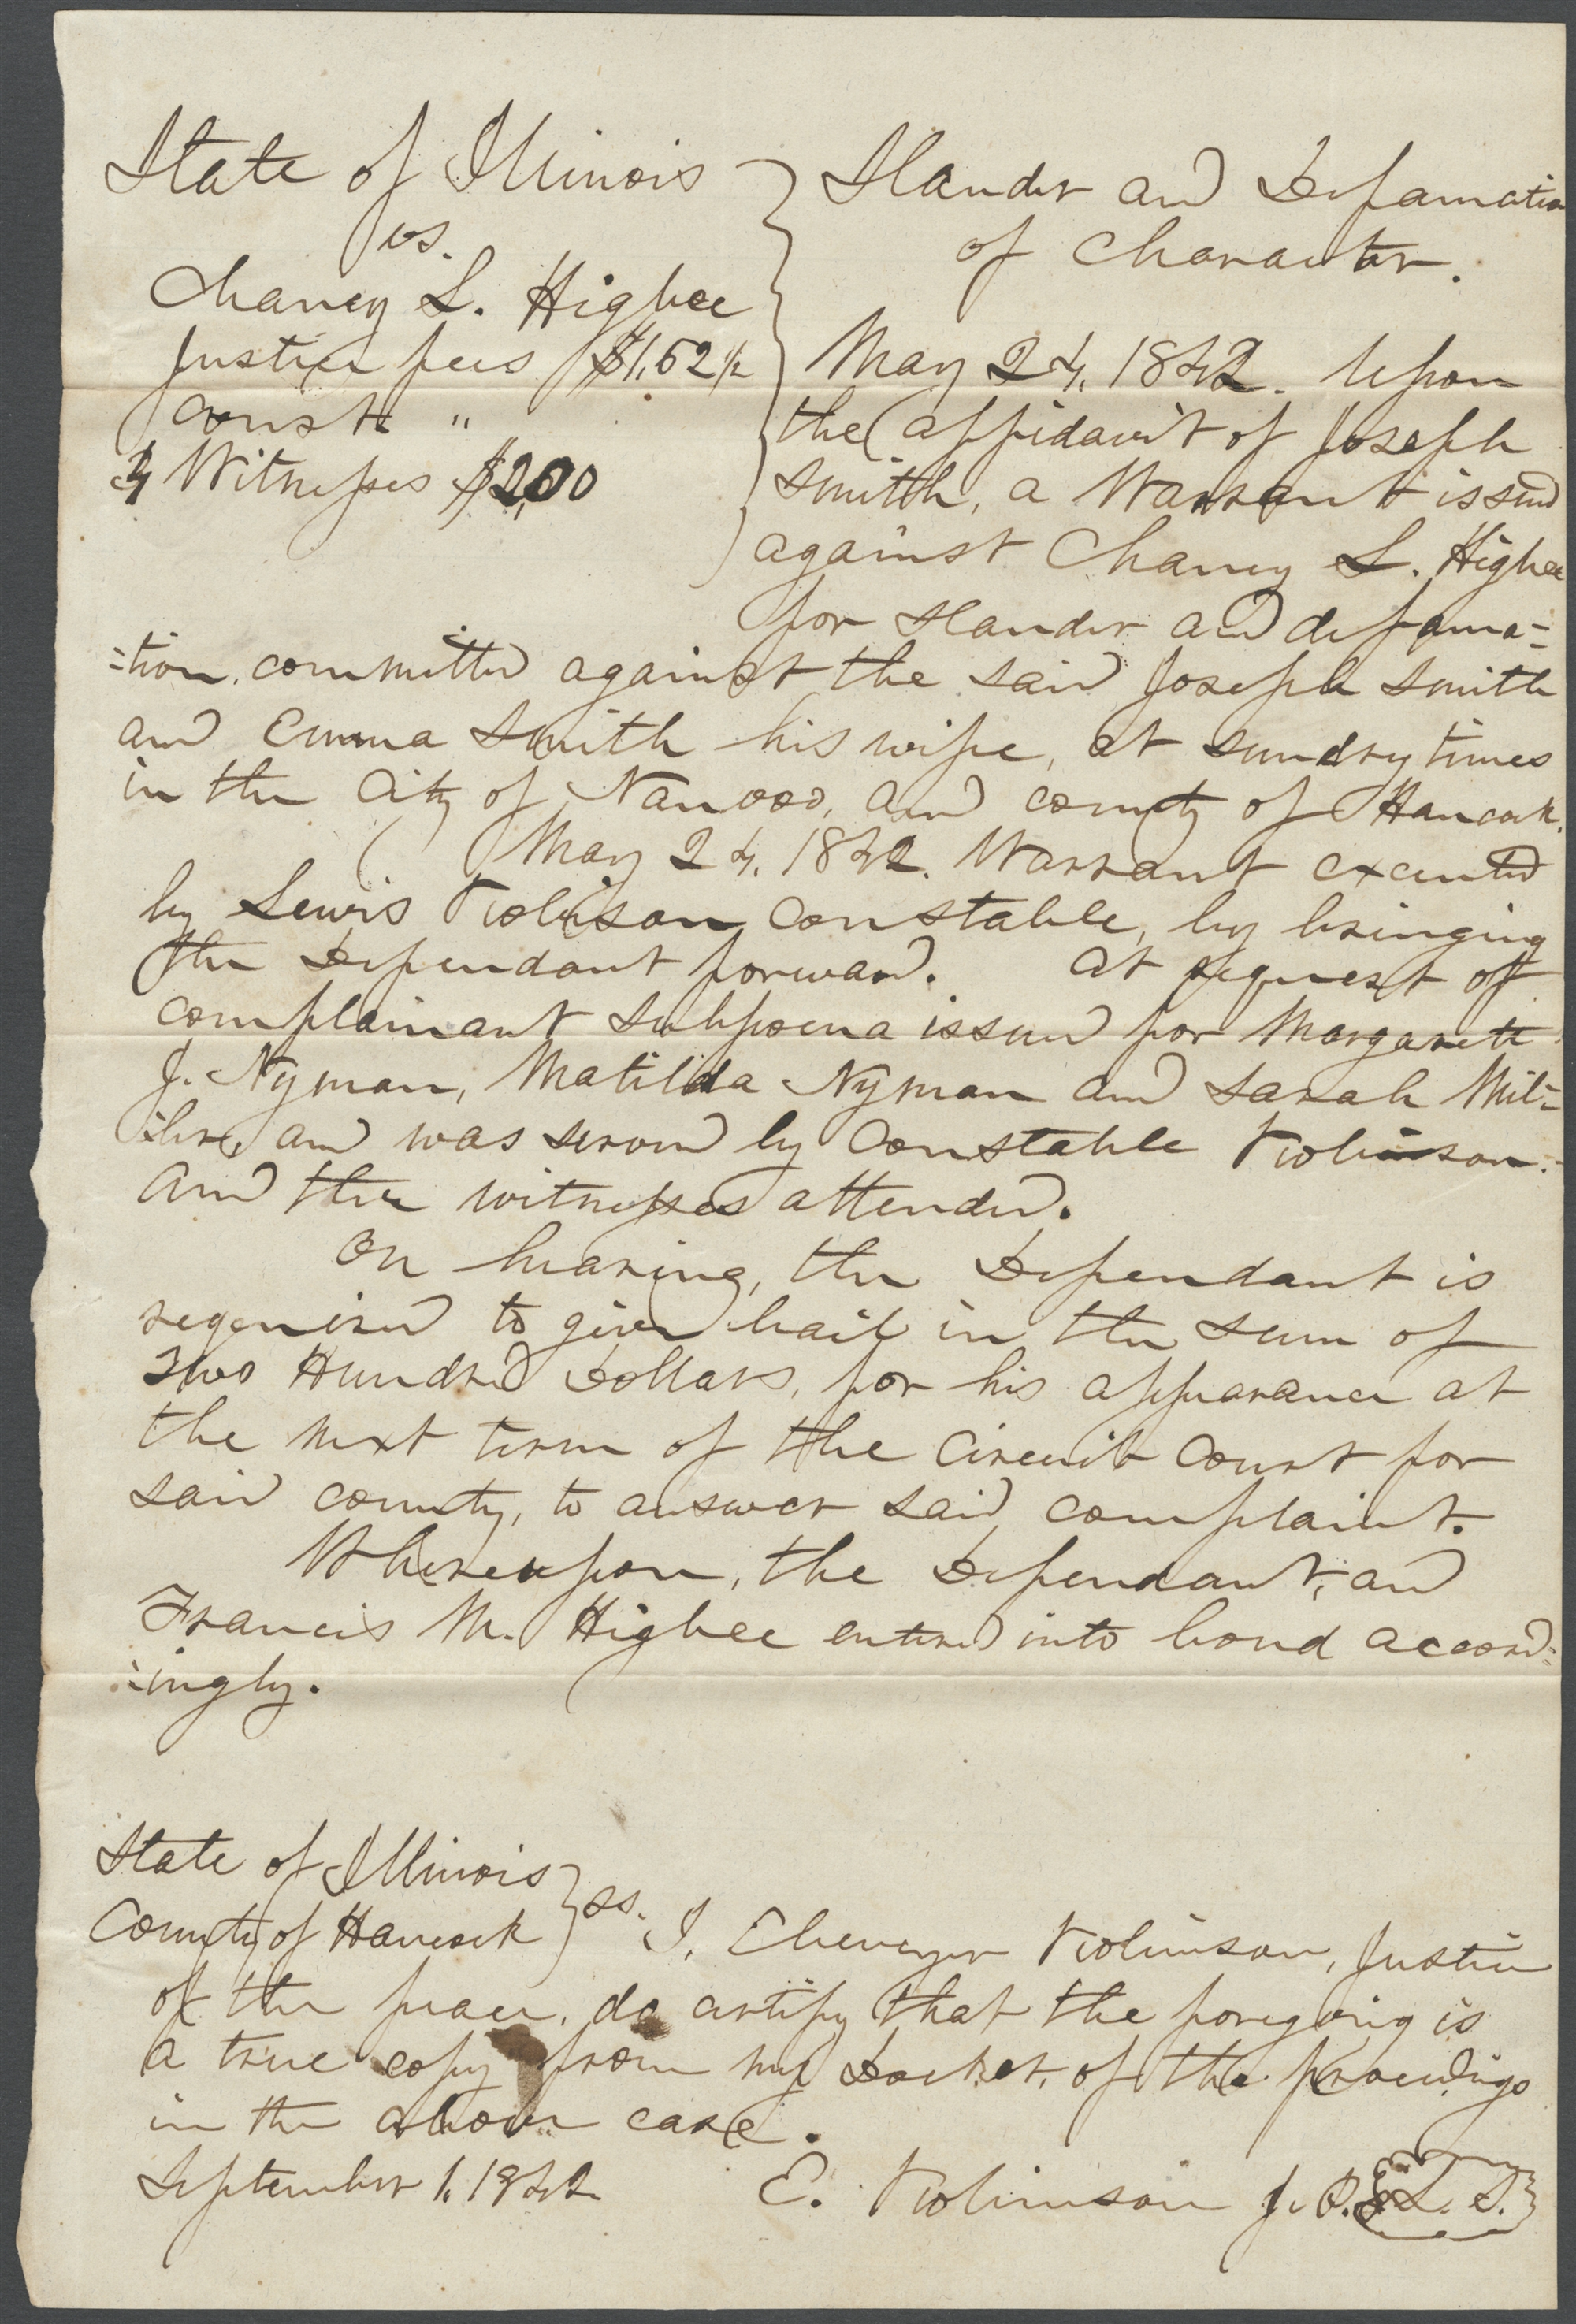 State of Illinois
vs.
Chancy L. Higbee
Justice fees $1,62½
Const "
4 Witnesses $2,00
Slander and Defamation
of Character.
May 24, 1842. Upon
the affidavit of Joseph
Smith, a Warrant issued
against Chancy L. Higbee
for slander and defama=
=tion, committed against the said Joseph Smith
and Emma Smith his wife, at sundry times
in the City of Nauvoo, and county of Hancock.
May 24, 1842. Warrant executed
by Lewis Robison constable, by bringing
the Defendant forward. At request of
complainant subpoena issued for Margarett
J. Nyman, Matilda Nyman and Sarah Mil=
=ler, and was served by Constable Robinson.
And the witnesses attended.
On hearing, the Defendant is
regenised to give bail in the sum of
Two Hundred Dollars, for his appearance at
the next term of the Circuit Court for
said county, to answer said complaint.
Whereupon, the Defendant, and
Francis M. Higbee entered into bond accord=
=ingly.
State of Illinois
County of Hancock } ss. I, Ebenezer Robinson, Justice
of the peace, do certify that the foregoing is
a true copy from my Docket, of the proceedings
in the above case.
September 1, 1842 E. Robinson J. P. L. S.